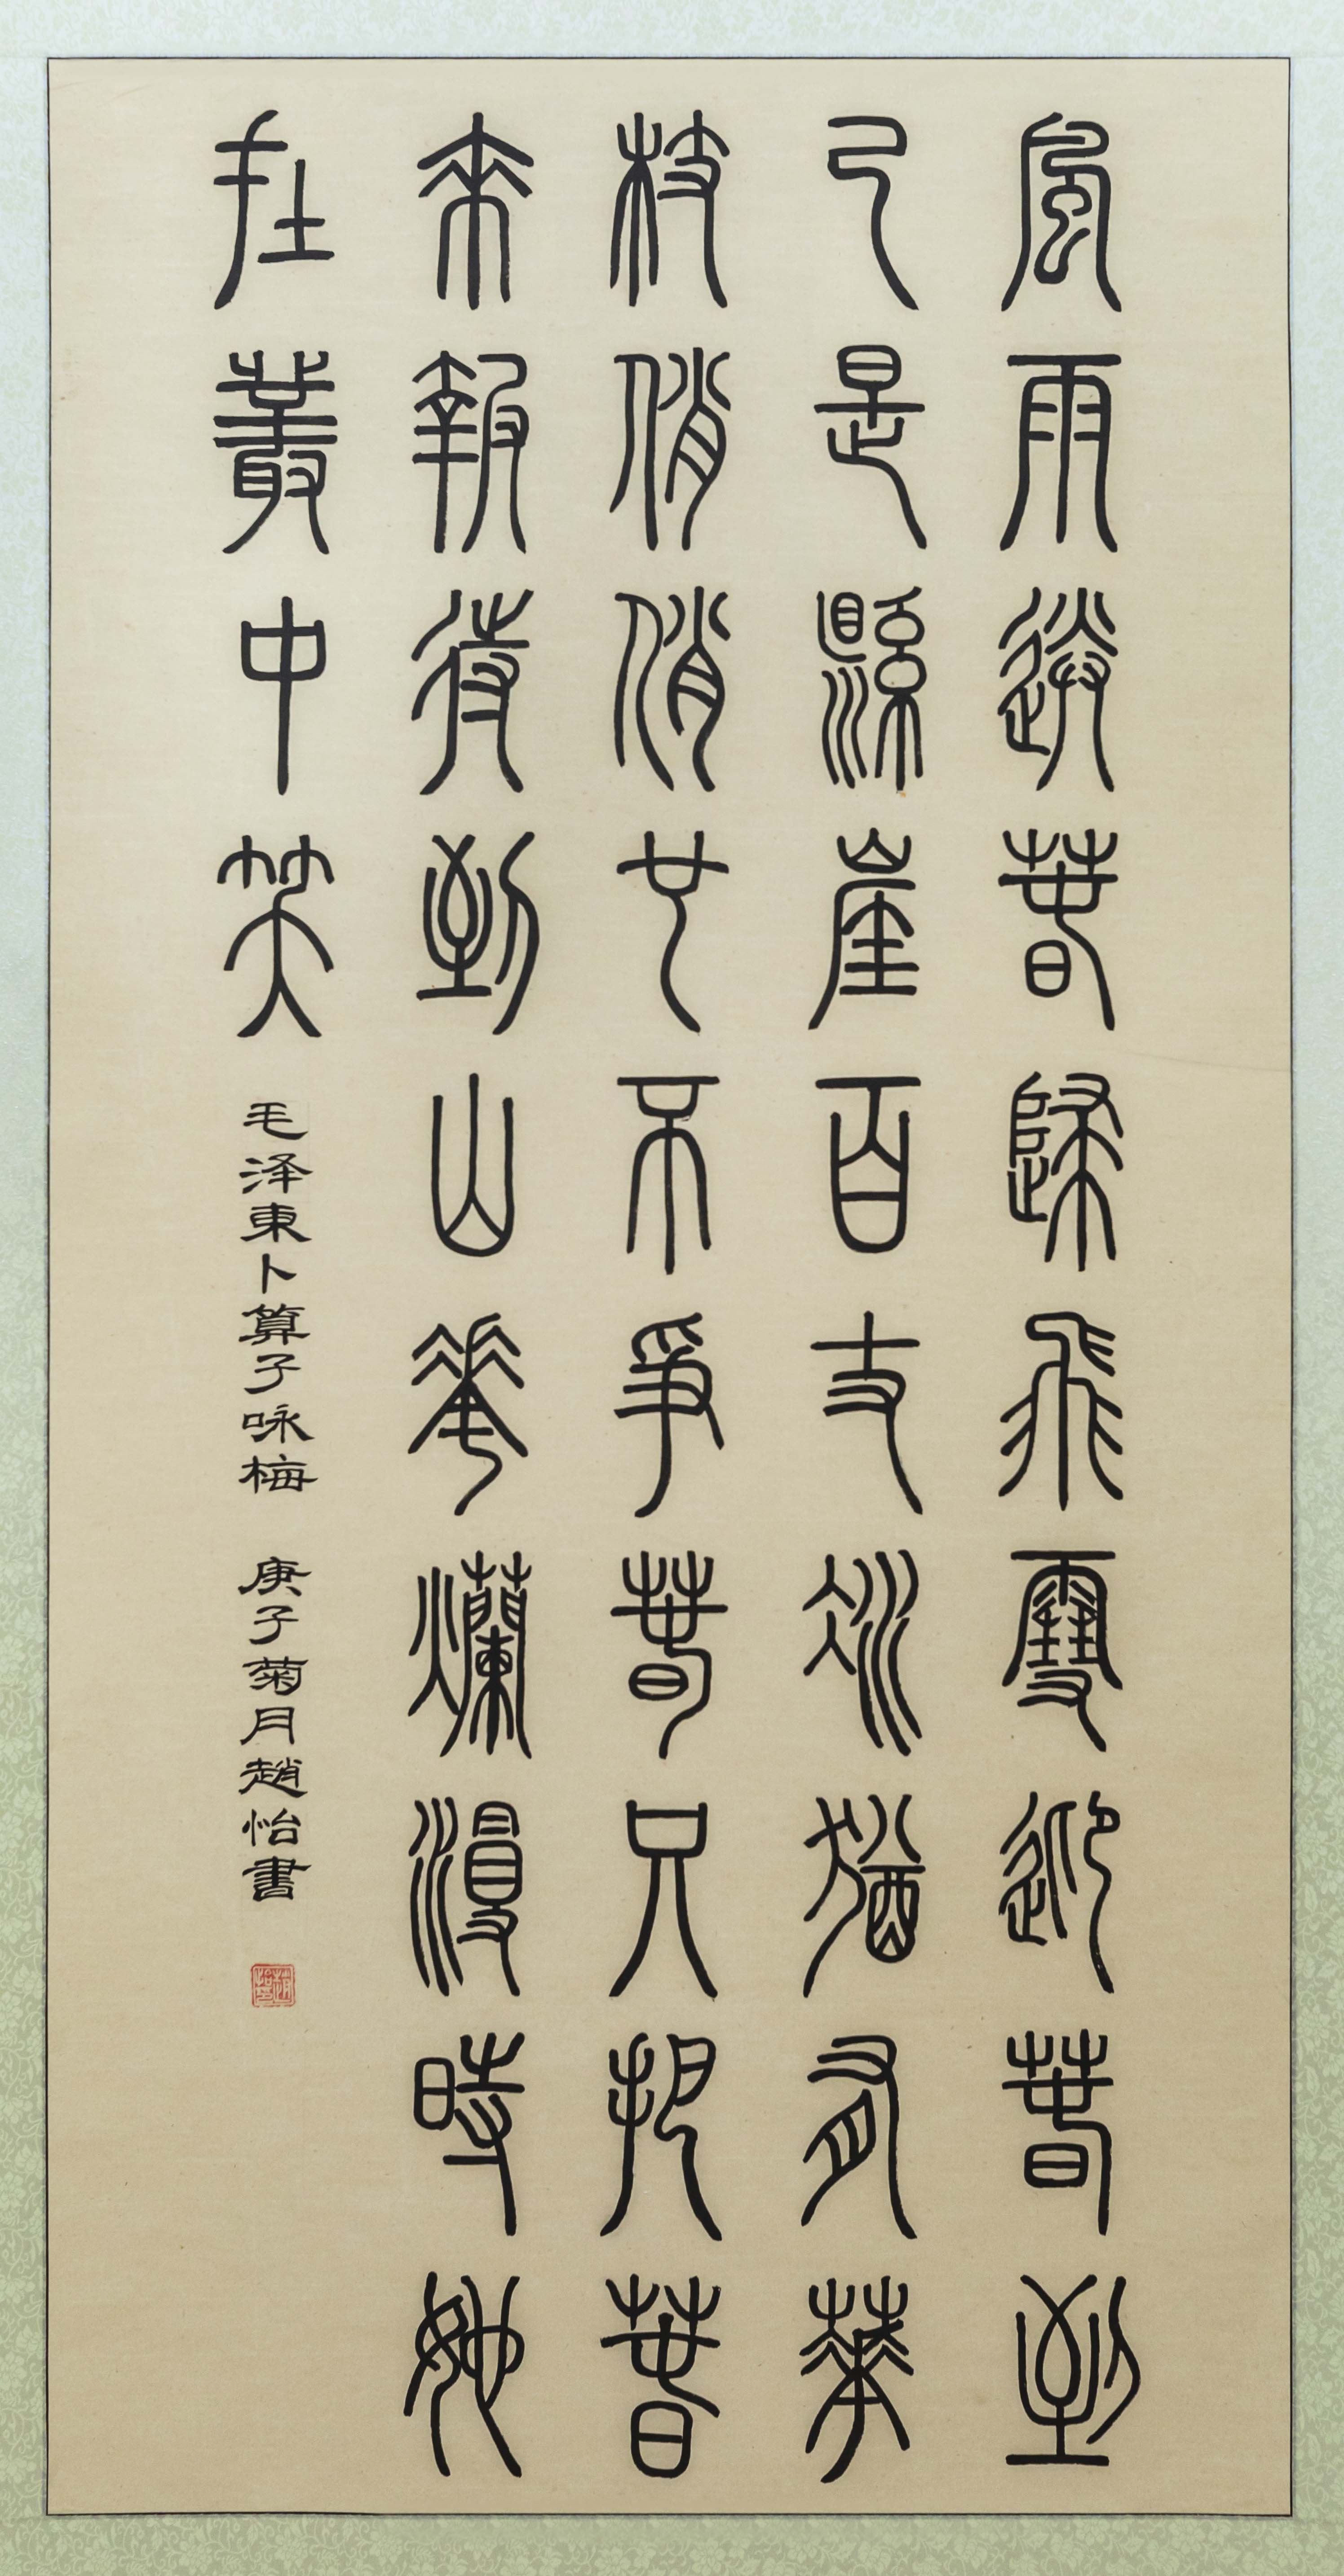 風雨送春歸飛雪迎春到
已是縣崖百丈冰猶有華
枝俏俏也不爭春只把春
來報待到山花爛漫時她
在叢中笑
毛泽東卜算子咏梅 庚子菊月趙怡書